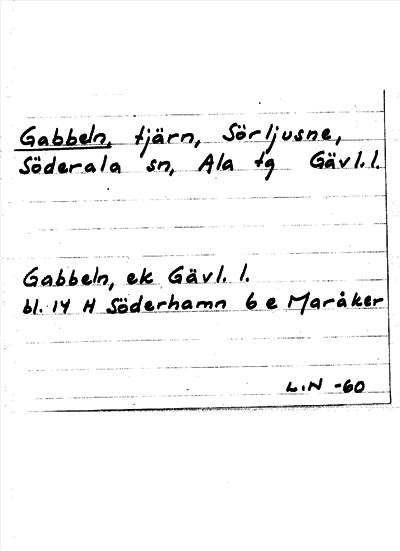 Gabbeln, tjärn, Sörljusne,
Söderala sn, Ala tg Gävl.l.
Gabbeln, ek Gävl. l.
bl. 14 H Söderhamn 6 e Maråker
L.N -60